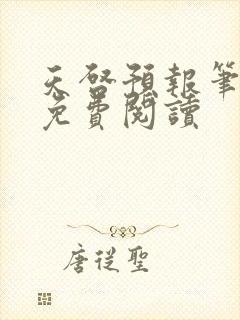 天啓預報筆
免費閱讀
唐從聖